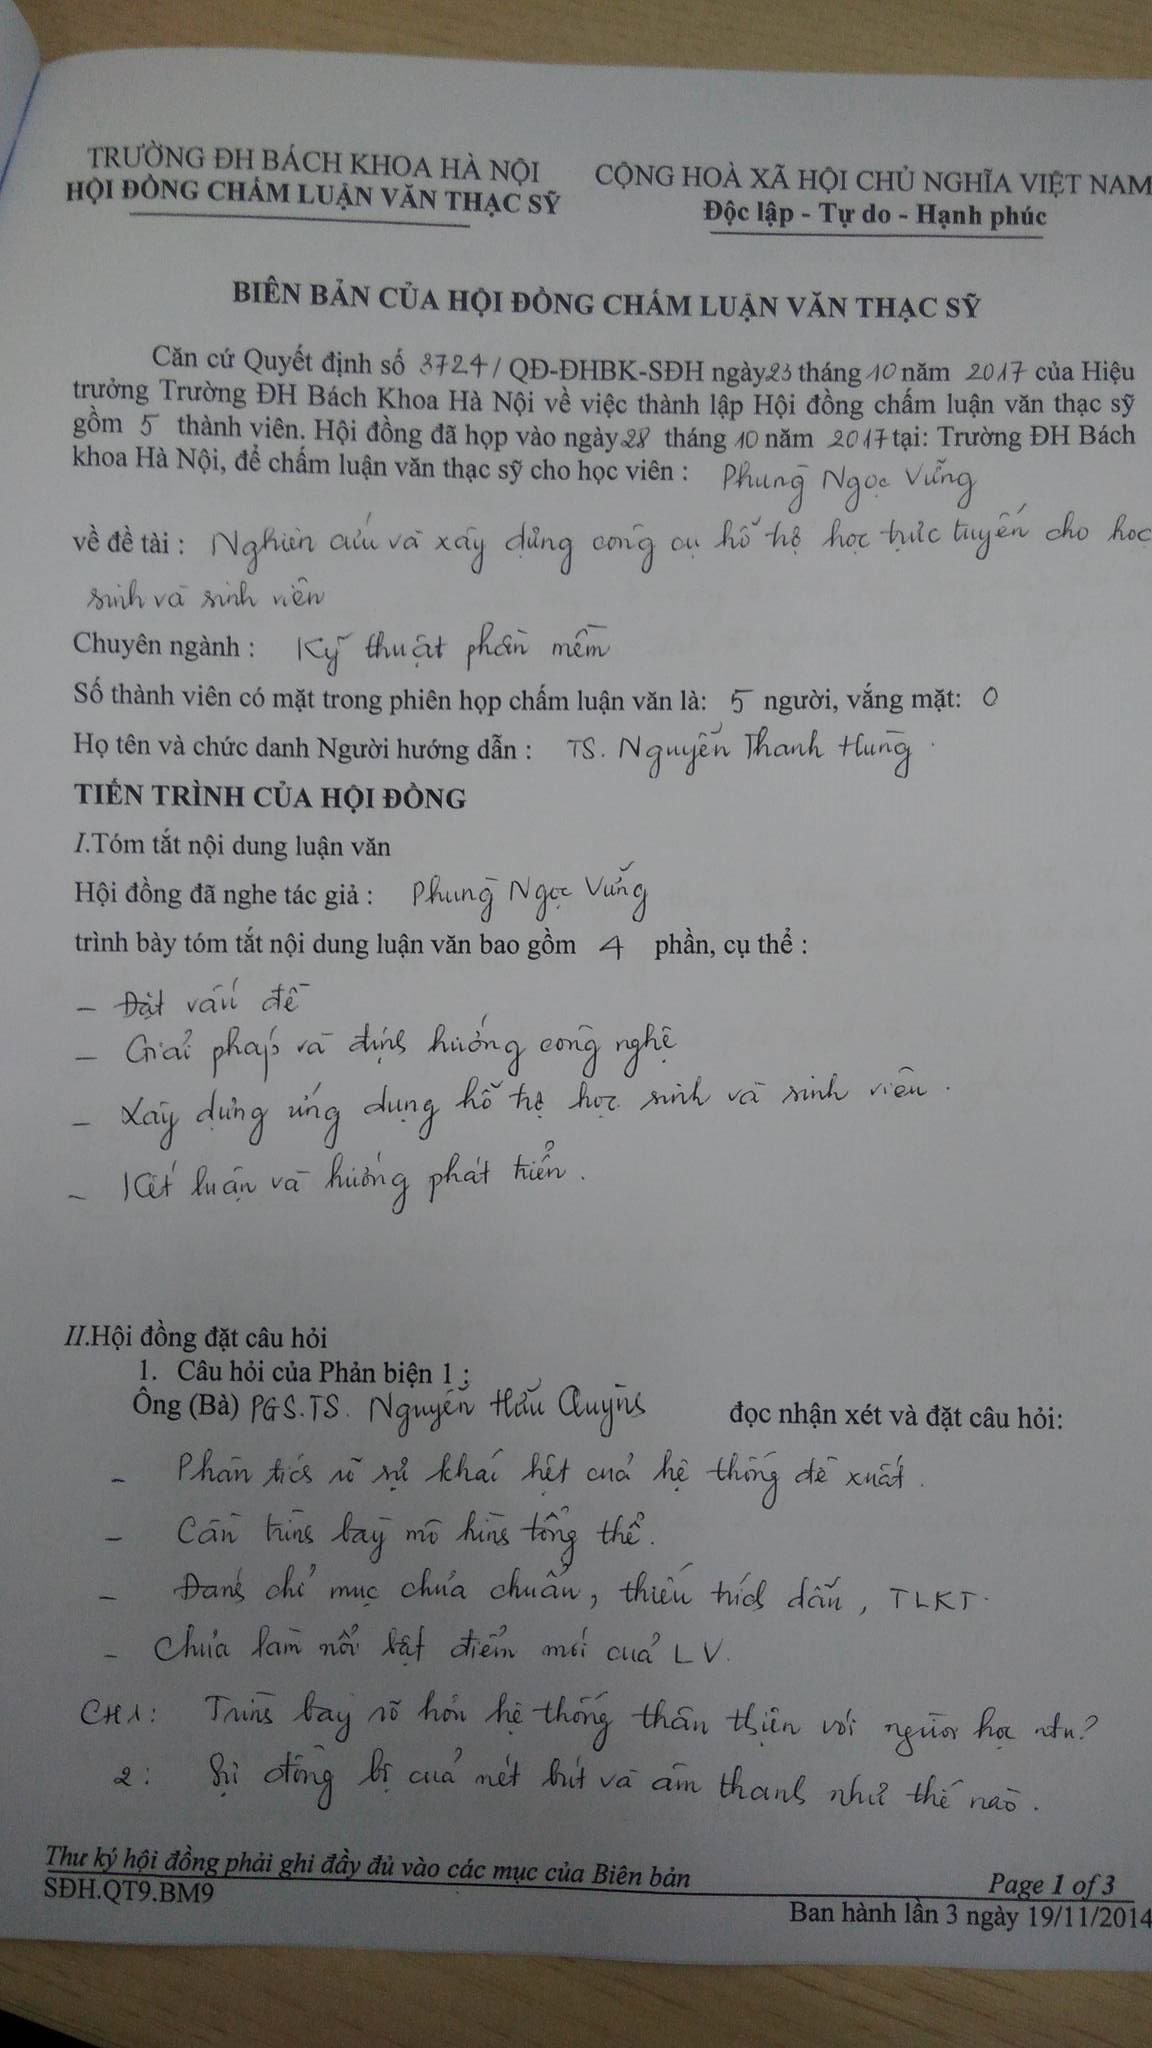 TRƯỜNG ĐH BÁCH KHOA HÀ NỘI
HỘI ĐỒNG CHẤM LUẬN VĂN THẠC SỸ
CỘNG HOÀ XÃ HỘI CHỦ NGHĨA VIỆT NAM
Độc lập - Tự do - Hạnh phúc
BIÊN BẢN CỦA HỘI ĐỒNG CHẤM LUẬN VĂN THẠC SỸ
Căn cứ Quyết định số 3724 / QĐ-ĐHBK-SĐH ngày 23 tháng 10 năm 2017 của Hiệu
trưởng Trường ĐH Bách Khoa Hà Nội về việc thành lập Hội đồng chấm luận văn thạc sỹ
gồm 5 thành viên. Hội đồng đã họp vào ngày 28 tháng 10 năm 2017 tại: Trường ĐH Bách
khoa Hà Nội, để chấm luận văn thạc sỹ cho học viên : Phùng Ngọc Vững
về đề tài : Nghiên cứu và xây dựng công cụ hỗ trợ học trực tuyến cho học
sinh và sinh viên
Chuyên ngành : Kỹ thuật phần mềm
Số thành viên có mặt trong phiên họp chấm luận văn là: 5 người, vắng mặt: 0
Họ tên và chức danh Người hướng dẫn : TS. Nguyễn Thanh Hùng
TIẾN TRÌNH CỦA HỘI ĐỒNG
I.Tóm tắt nội dung luận văn
Hội đồng đã nghe tác giả : Phùng Ngọc Vững
trình bày tóm tắt nội dung luận văn bao gồm 4 phần, cụ thể :
- Đặt vấn đề
- Giải pháp và định hướng công nghệ
- Xây dựng ứng dụng hỗ trợ học sinh và sinh viên.
- Kết luận và hướng phát triển.
II.Hội đồng đặt câu hỏi
1. Câu hỏi của Phản biện 1 :
Ông (Bà) PGS.TS. Nguyễn Hữu Quỳnh đọc nhận xét và đặt câu hỏi:
- Phân tích rõ sự khác biệt của hệ thống đề xuất.
- Cần trình bày mô hình tổng thể.
- Đánh chỉ mục chưa chuẩn, thiếu trích dẫn, TLKT.
- Chưa làm nổi bật điểm mới của LV.
CH1: Trình bày rõ hơn hệ thống thân thiện với người học ntn?
2: Sự đồng bộ của nét bút và âm thanh như thế nào.
Thư ký hội đồng phải ghi đầy đủ vào các mục của Biên bản
SĐH.QT9.BM9
Page 1 of 3
Ban hành lần 3 ngày 19/11/2014